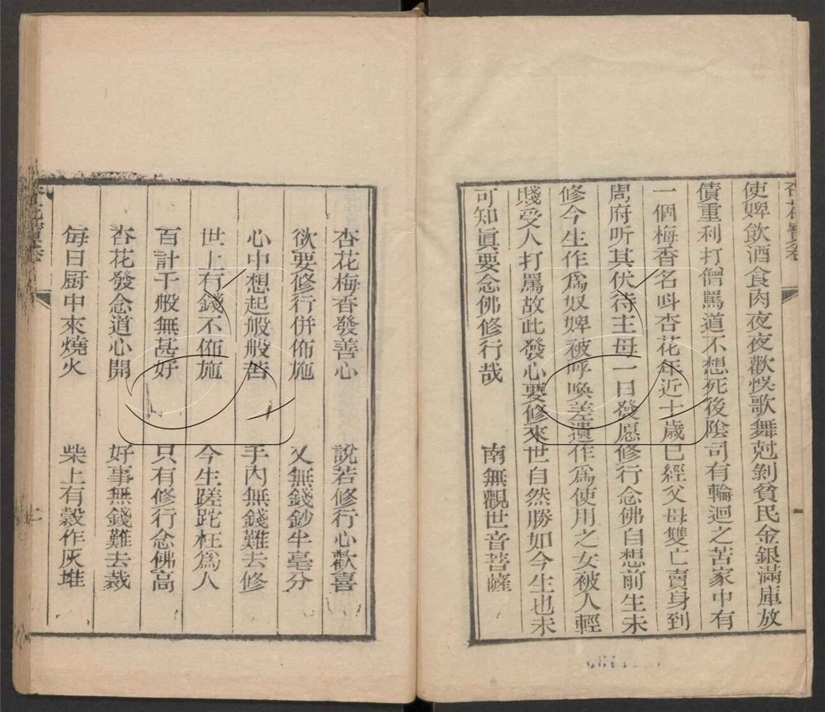 杏花寶卷
使婢飲酒食肉夜夜歡悞歌舞尅剝貧民金銀滿庫放
債重利打僧罵道不想死後陰司有輪迴之苦家中有
一個梅香名呌杏花年近十歲已經父母雙亡賣身到
周府听其伏待主母一日發愿修行念佛自想前生未
修今生作爲奴婢被呼喚差遣作爲使用之女被人輕
賤受人打罵故此發心要修來世自然勝如今生也未
可知眞要念佛修行哉 南無觀世音菩薩
杏花梅香發善心 說若修行心歡喜
欲要修行併佈施 又無錢鈔半毫分
心中想起般般苦 手內無錢難去修
世上有錢不佈施 今生蹉跎枉爲人
百計千般無甚好 只有修行念佛高
杏花發念道心開 好事無錢難去裁
每日厨中來燒火 柴上有穀作灰堆